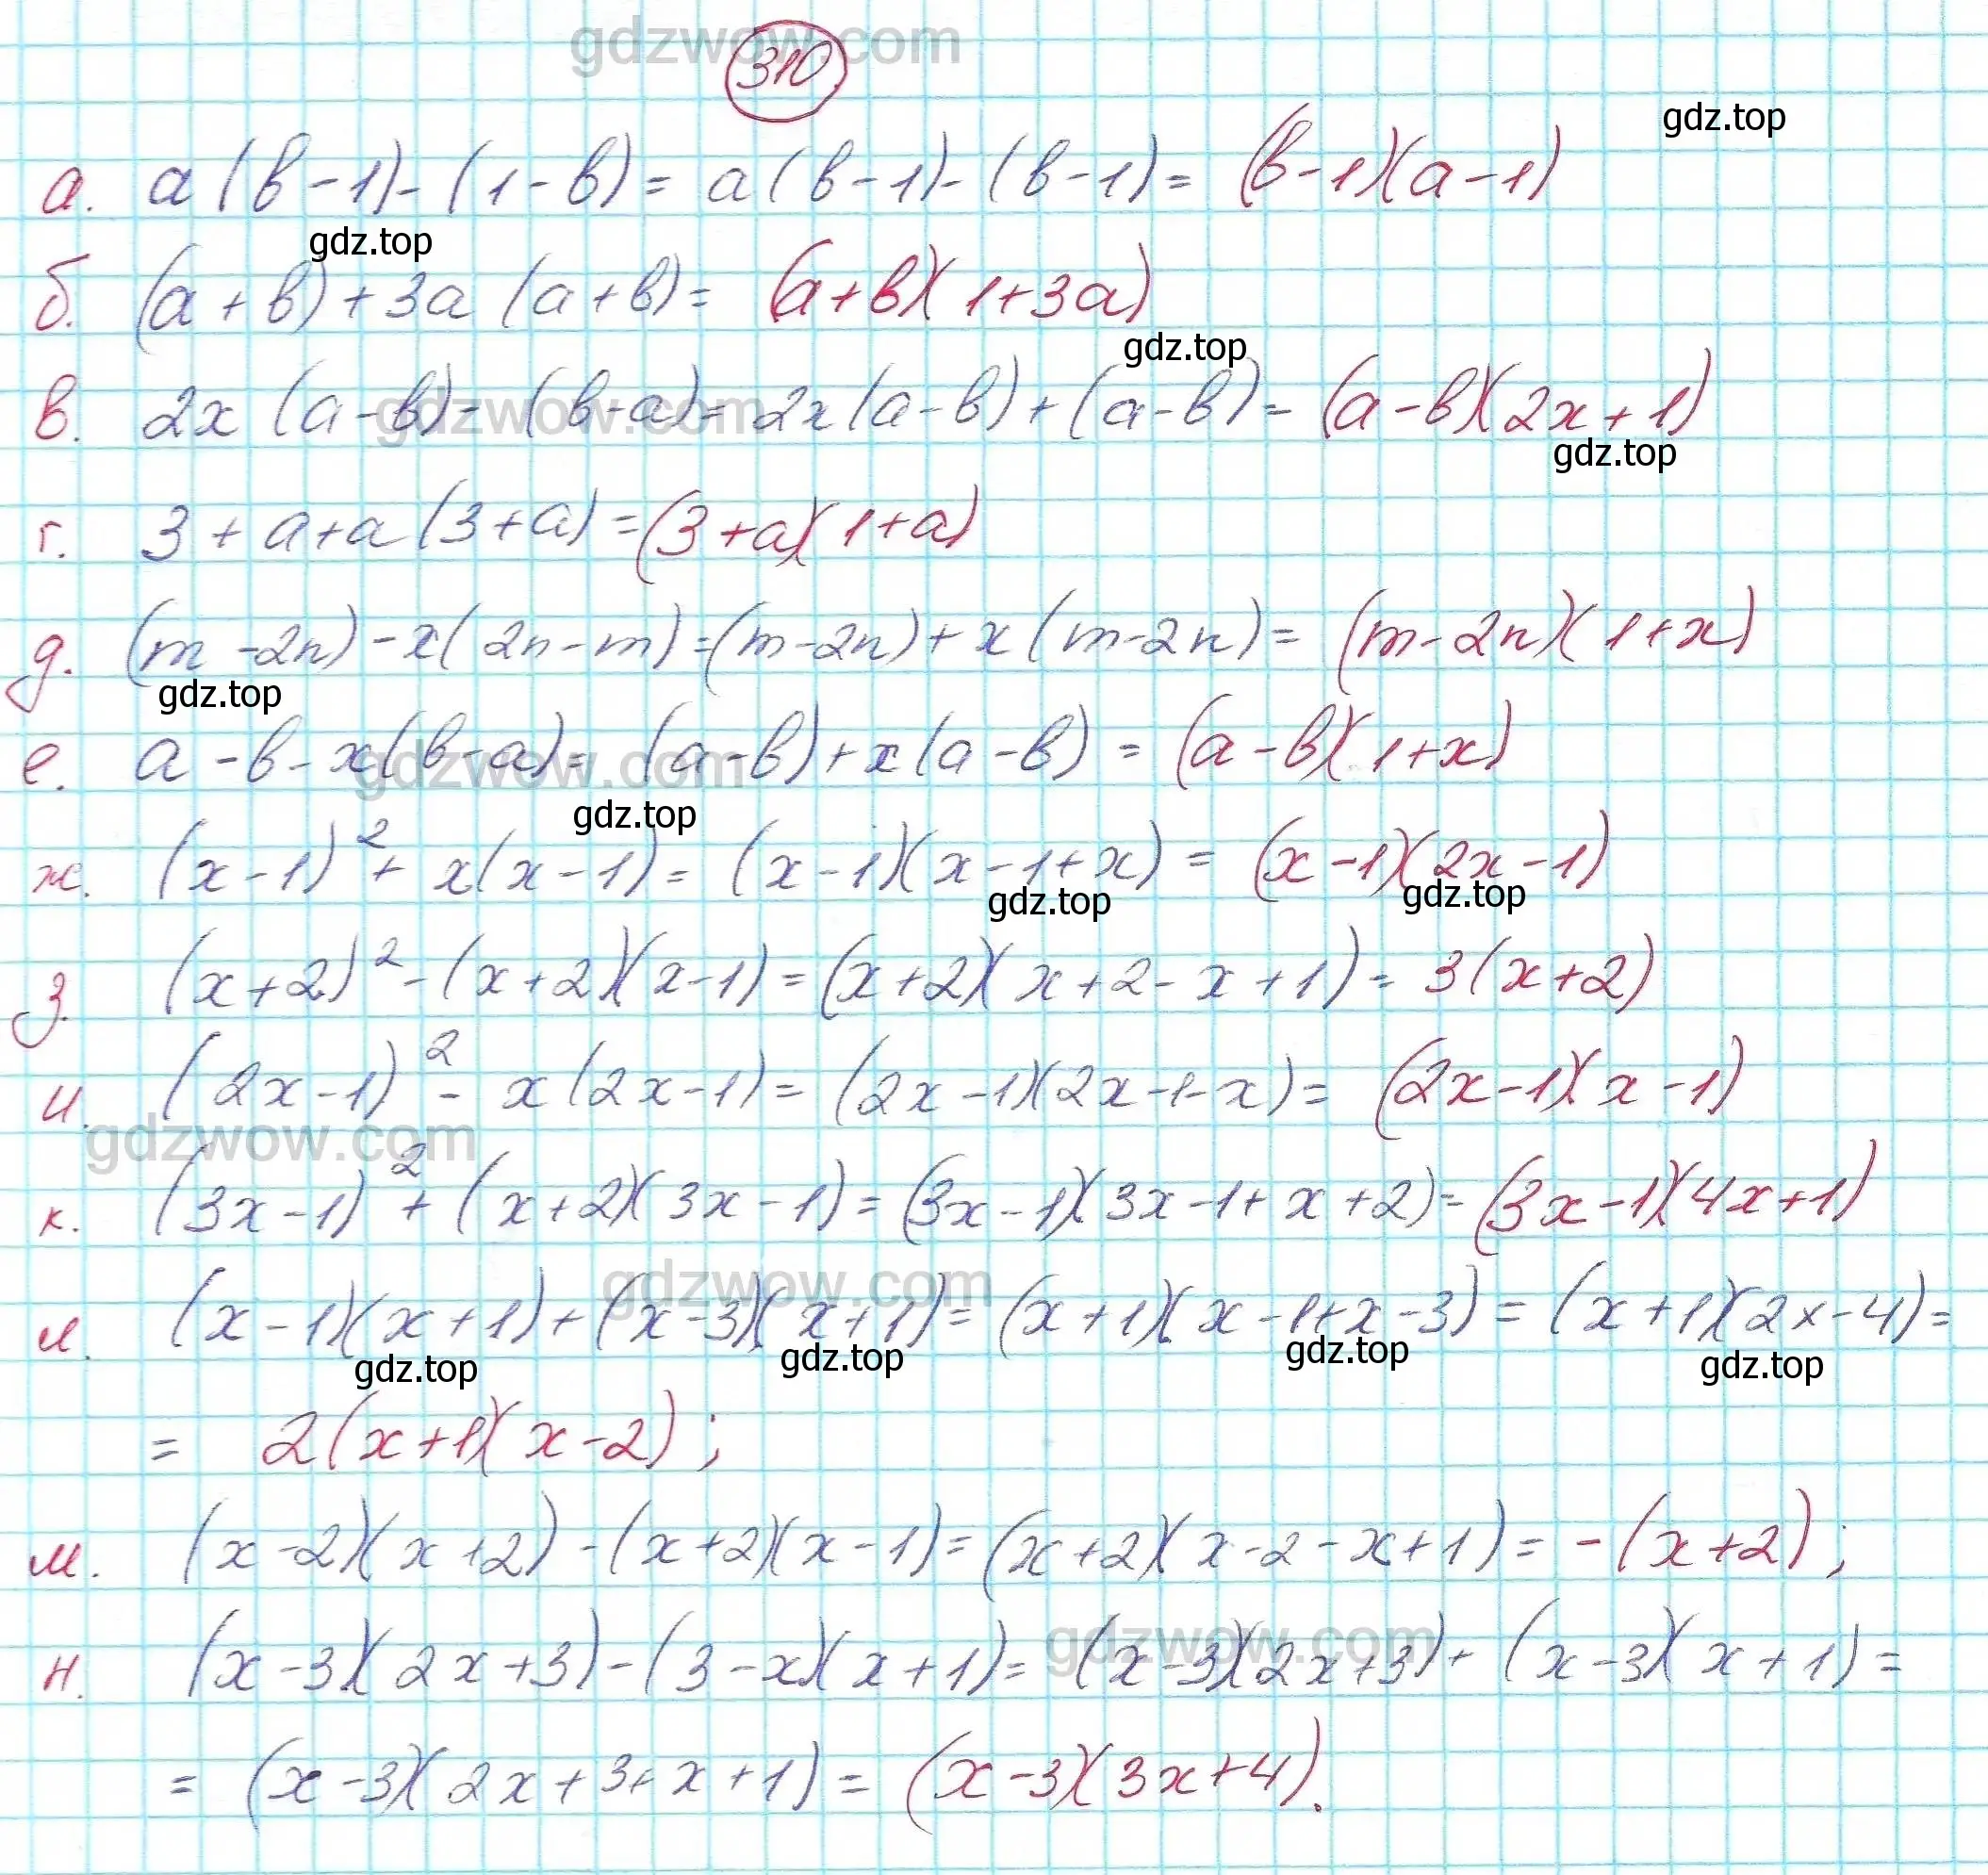 gdzwow.com
310
gdz.top
а. a(b-1)-(1-b)= a(b-1)-(b-1)= (b-1)(a-1)
gdz.top
б. (a+b)+3a(a+b)= (a+b)(1+3a)
gdz.top
в. 2x(a-b)-(b-a)=2x(a-b)+(a-b)=(a-b)(2x+1)
gdzwow.com
gdz.top
г. 3+a+a(3+a)=(3+a)(1+a)
д. (m-2n)-x(2n-m)=(m-2n)+x(m-2n)=(m-2n)(1+x)
gdz.top
е. a-b-x(b-a)=(a-b)+x(a-b)=(a-b)(1+x)
gdzwow.com
gdz.top
ж. (x-1)²+x(x-1)=(x-1)(x-1+x)=(x-1)(2x-1)
gdz.top gdz.top
з. (x+2)²-(x+2)(x-1)=(x+2)(x+2-x+1)=3(x+2)
и. (2x-1)²-x(2x-1)=(2x-1)(2x-1-x)=(2x-1)(x-1)
gdzwow.com
к. (3x-1)²+(x+2)(3x-1)=(3x-1)(3x-1+x+2)=(3x-1)(4x+1)
gdzwow.com
л. (x-1)(x+1)+(x-3)(x+1)=(x+1)(x-1+x-3)=(x+1)(2x-4)=
gdz.top gdz.top gdz.top gdz.top
= 2(x+1)(x-2);
м. (x-2)(x+2)-(x+2)(x-1)=(x+2)(x-2-x+1)=-(x+2);
gdzwow.com
н. (x-3)(2x+3)-(3-x)(x+1)=(x-3)(2x+3)+(x-3)(x+1)=
=(x-3)(2x+3+x+1)=(x-3)(3x+4).